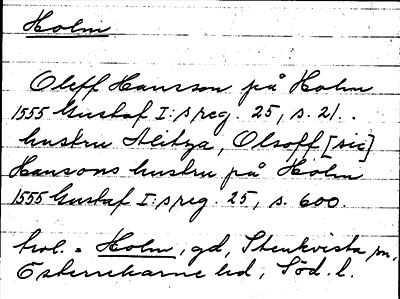 Holm
Oleff Hansson på Holm
1555 Gustaf I:s reg. 25, s. 21.
hustru Alitza, Olsoff [sic]
Hansons hustru på Holm
1555 Gustaf I:s reg. 25, s. 600.
trol. = Holm, gd, Stenkvista sn,
Österrekarne hd, Söd. l.